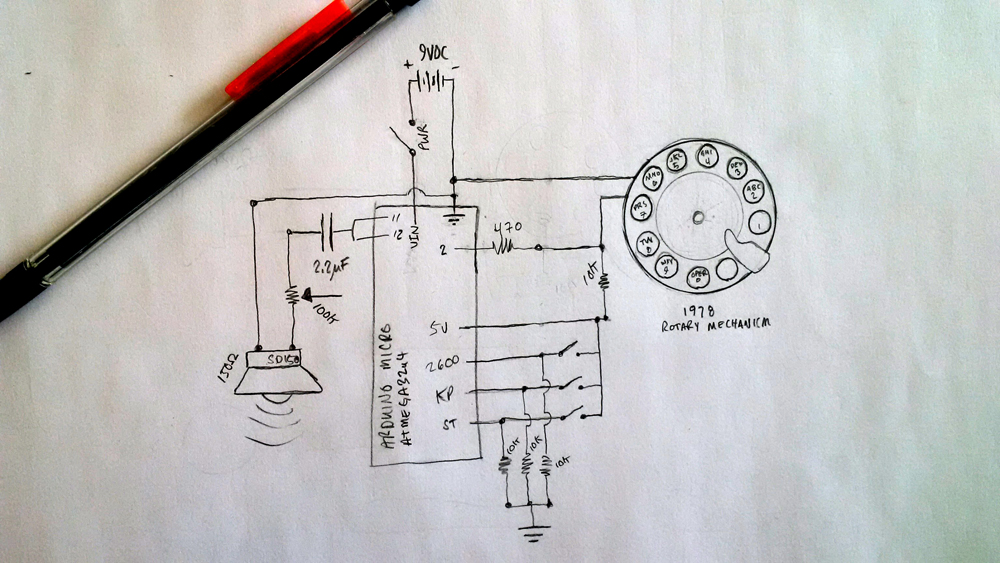 9VDC
+ -
PWR
11
12
VIN
2
470
2.2µF
100K
10K
5V
2600
KP
ST
ARDUINO MICRO
ATMEGA32U4
150Ω
SD150
10K
10K
10K
1
ABC
2
DEF
3
4
5
MNO
6
PRS
7
8
WXY
9
OPER
0
1978
ROTARY MECHANISM